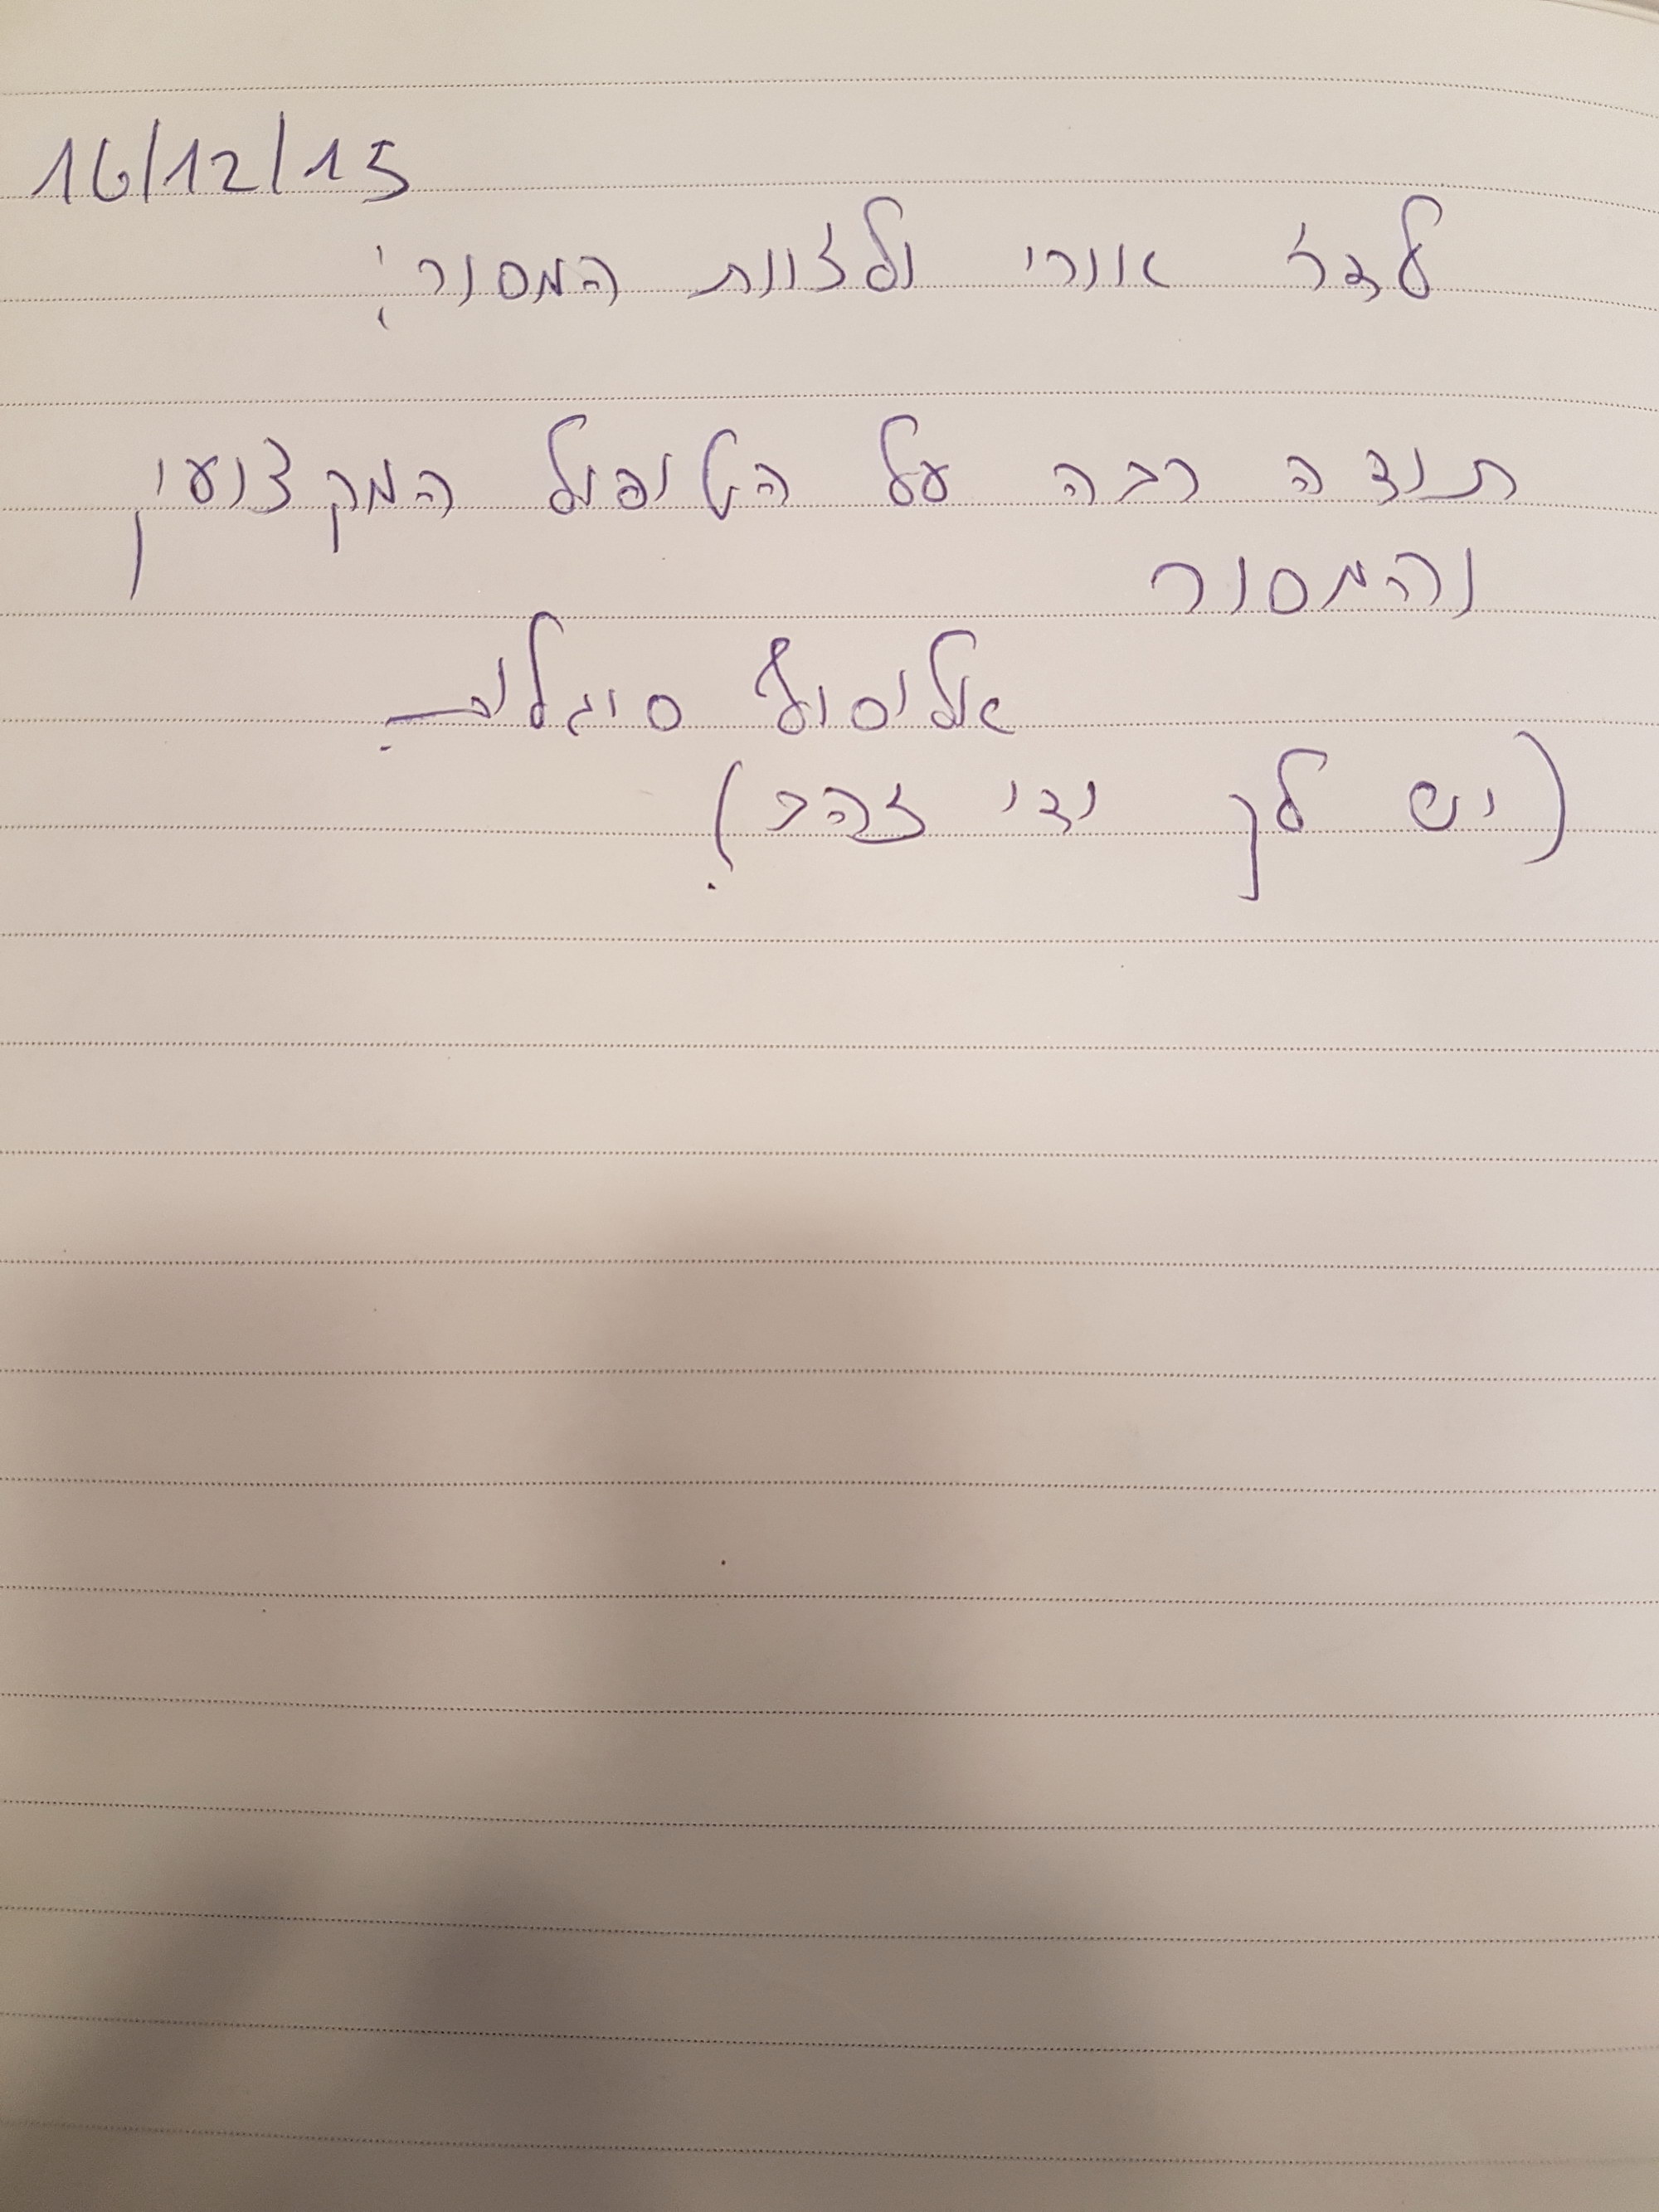 16/12/15
לדר' אורי ולצוות המסור:
תודה רבה על הטיפול המקצועי
והמסור
אליסוף
(יש לך ידי זהב).